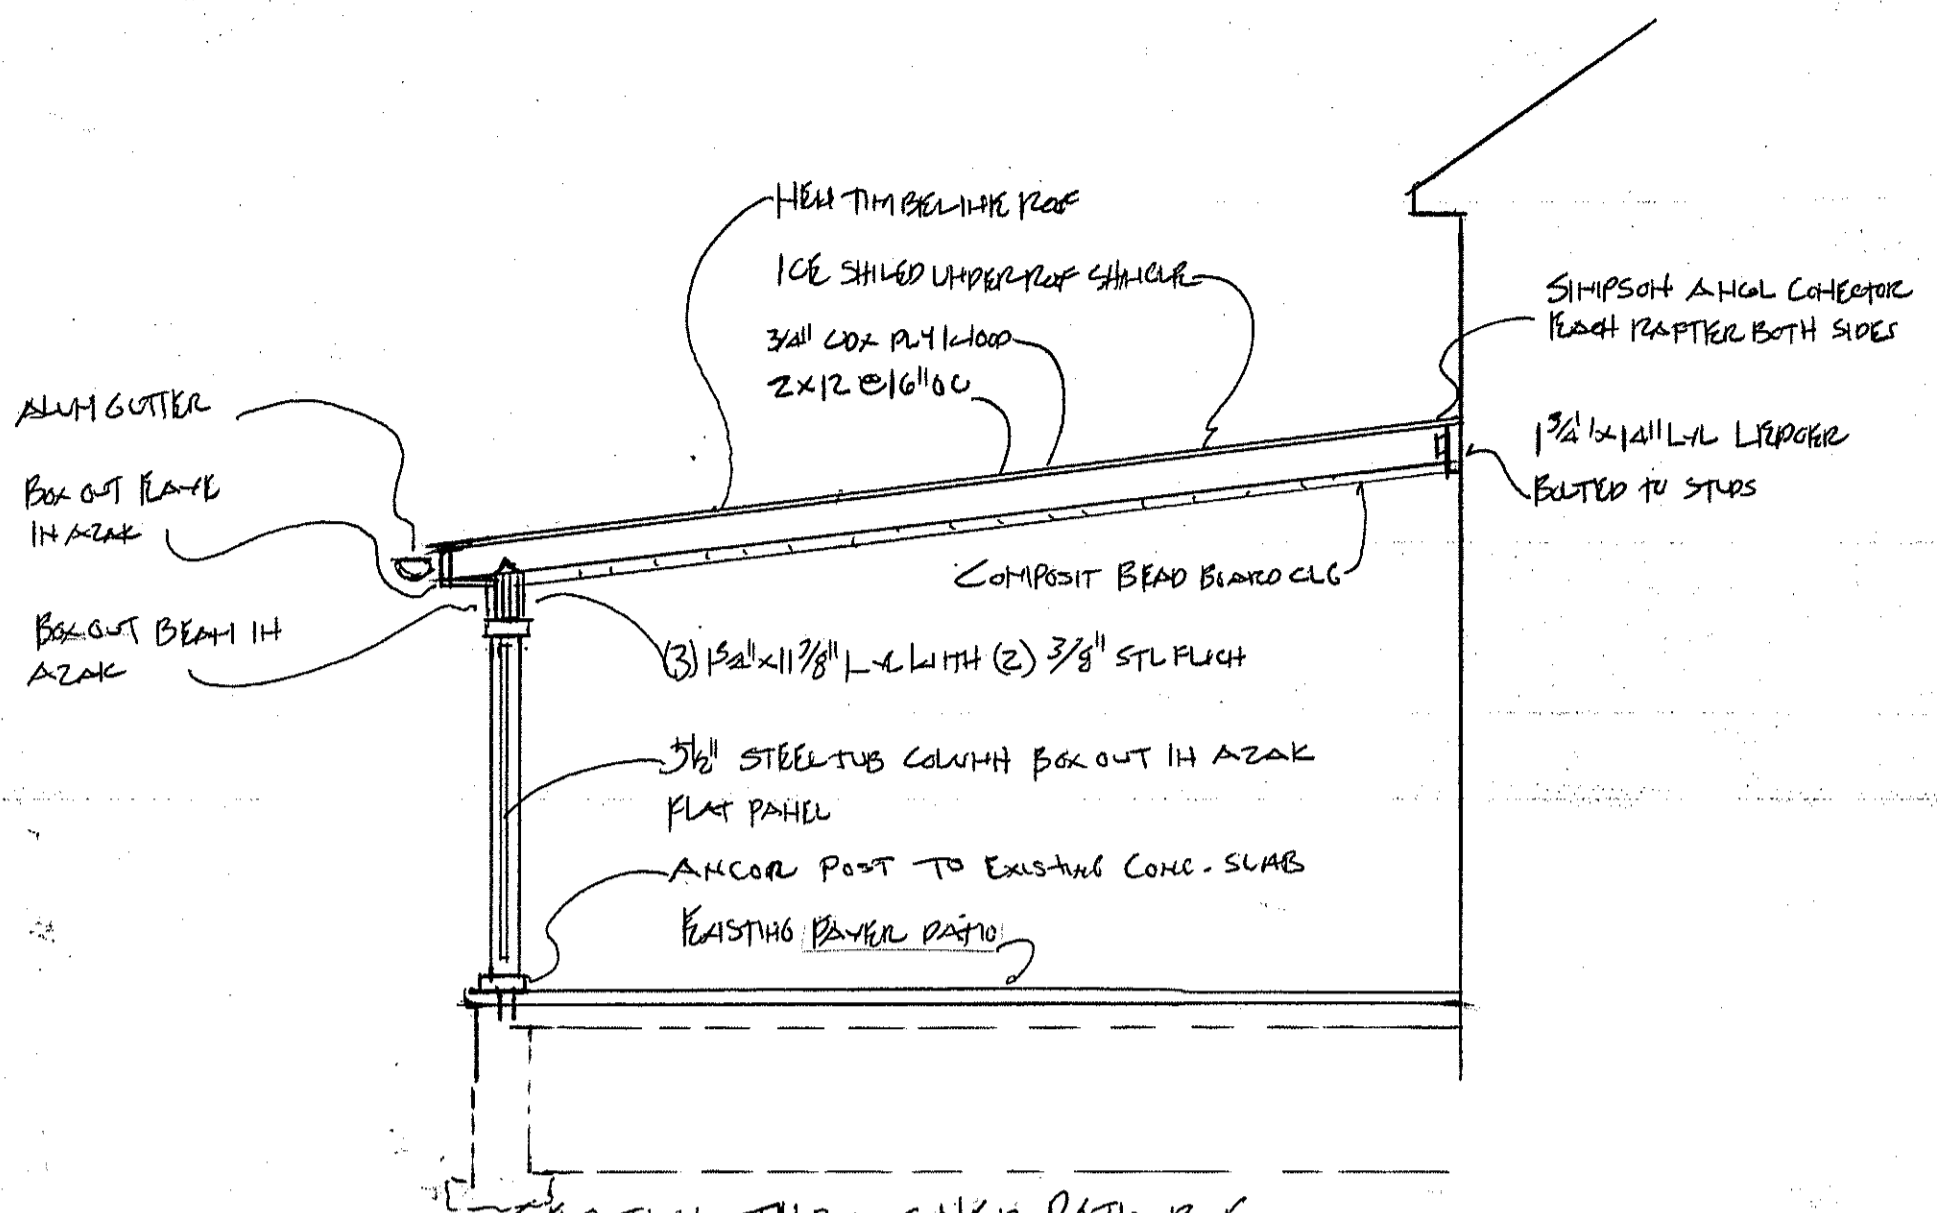 NEW TIMBERLINE ROOF
ICE SHILED UNDER ROOF SHINGLE
3/4" CDX PLYWOOD
2x12 @ 16" OC
SIMPSON ANGL CONECTOR
EACH RAFTER BOTH SIDES
1 3/4" x 14" LVL LEDGER
BOLTED TO STUDS
ALUM GUTTER
BOX OUT EAVE
IN AZAK
BOX OUT BEAM IN
AZAK
COMPOSIT BEAD BOARD CLG
(3) 1 3/4" x 11 7/8" LVL WITH (2) 3/8" STL FLICH
5 1/2" STEEL TUB COLUMN BOX OUT IN AZAK
FLAT PANEL
ANCOR POST TO EXISTING CONC. SLAB
EXISTING PAVER PATIO